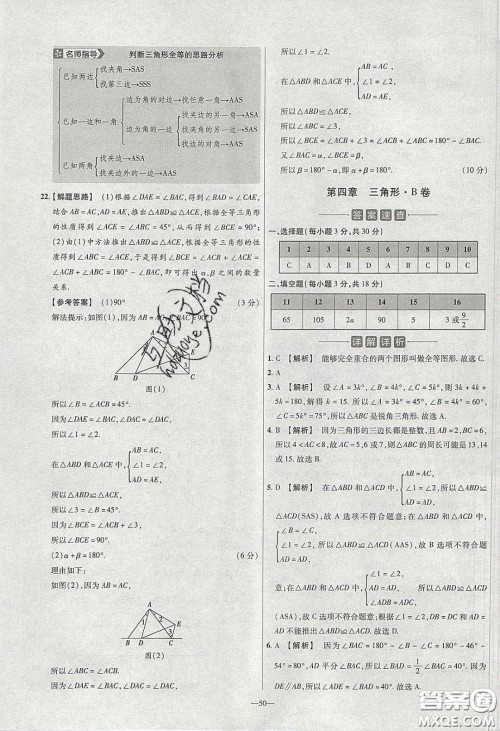 名师指导
判断三角形全等的思路分析
已知两边
找夹角→SAS
找第三边→SSS
已知一边和一角
边为角的对边→找任意一角→AAS
边为角的一边
找夹边的另一角→ASA
找边的对角→AAS
找夹角的另一边→SAS
已知两角
找夹边→ASA
找夹边外的一边→AAS
22.【解题思路】(1)根据∠DAE=∠BAC,得到∠BAD=∠CAE,
结合AB=AC,AD=AE,得到△ABD≌△ACE,由全等三角形
的性质得到∠ACE=∠ABC=45°,从而得到∠BCE=90°;
(2)由(1)中方法推出△ABD≌△ACE,得到∠BCE=∠ACE+
∠ACB=∠ABC+∠ACB,即可得出α,β之间的数量
关系.
【参考答案】(1)90°
解法提示:如图(1),
因为AB=AC,∠BAC=90°,
A
E
B
D
C
图(1)
所以∠B=∠ACB=45°.
因为∠DAE=∠BAC,
所以∠1=∠2.
在△ABD和△ACE中,
AB=AC,
∠1=∠2,
AD=AE,
所以△ABD≌△ACE,
所以∠3=∠B=45°.
因为∠BCE=∠ACB+∠3,
所以∠BCE=90°.
(2)α+β=180°. (6分)
理由如下:
如图(2),因为AB=AC,
A
E
B
D
C
图(2)
所以∠ABC=∠ACB.
因为∠DAE=∠BAC,
所以∠1=∠2.
在△ABD和△ACE中,
AB=AC,
∠1=∠2,
AD=AE,
所以△ABD≌△ACE,
所以∠ABC=∠3,
所以∠BCE=∠ACB+∠3=∠ACB+∠ABC=180°-∠BAC,
所以β=180°-α,即α+β=180°. (10分)
第四章 三角形·B卷
答案速查
一、选择题(每小题3分,共30分)
1 2 3 4 5 6 7 8 9 10
C A A B D A C D B C
二、填空题(每小题3分,共18分)
11 12 13 14 15 16
65 105 2a 90 5 3或9/2
详解详析
1. C 【解析】 能够完全重合的两个图形叫做全等图形.故选C.
2. A
3. A 【解析】 设∠A=3k°,∠B=4k°,∠C=5k°,则3k+4k+
5k=180,解得k=15.所以∠A=45°,∠B=60°,∠C=
75°.所以△ABC是锐角三角形.故选A.
4. B 【解析】 因为三角形的三边长都是整数,且6-2<AC<6+2,
所以4<AC<8,故AC=5,6或7,则△ABC的周长可能是13,
14或15.故选B.
5. D 【解析】 在△ABD和△ACD中,
AB=AC,
∠1=∠2,
AD=AD,
所以△ABD≌
△ACD(SAS),故A选项不符合题意;在△ABD和△ACD中,
∠B=∠C,
∠1=∠2,
AD=AD,
所以△ABD≌△ACD(AAS),故B选项不符合题
意;在△ABD和△ACD中,
所以△ABD≌△ACD
(ASA),故C选项不符合题意;由∠1=∠2,DB=DC和AD=
AD,无法得到△ABD≌△ACD.故选D.
6. A 【解析】 ∠BAC=180°-∠B-∠C=180°-46°-
54°=80°,AD平分∠BAC,故∠BAD=1/2∠BAC=40°.因为
DE//AB,所以∠ADE=∠BAD=40°.故选A.
—50—
答案圈
MXQE.COM